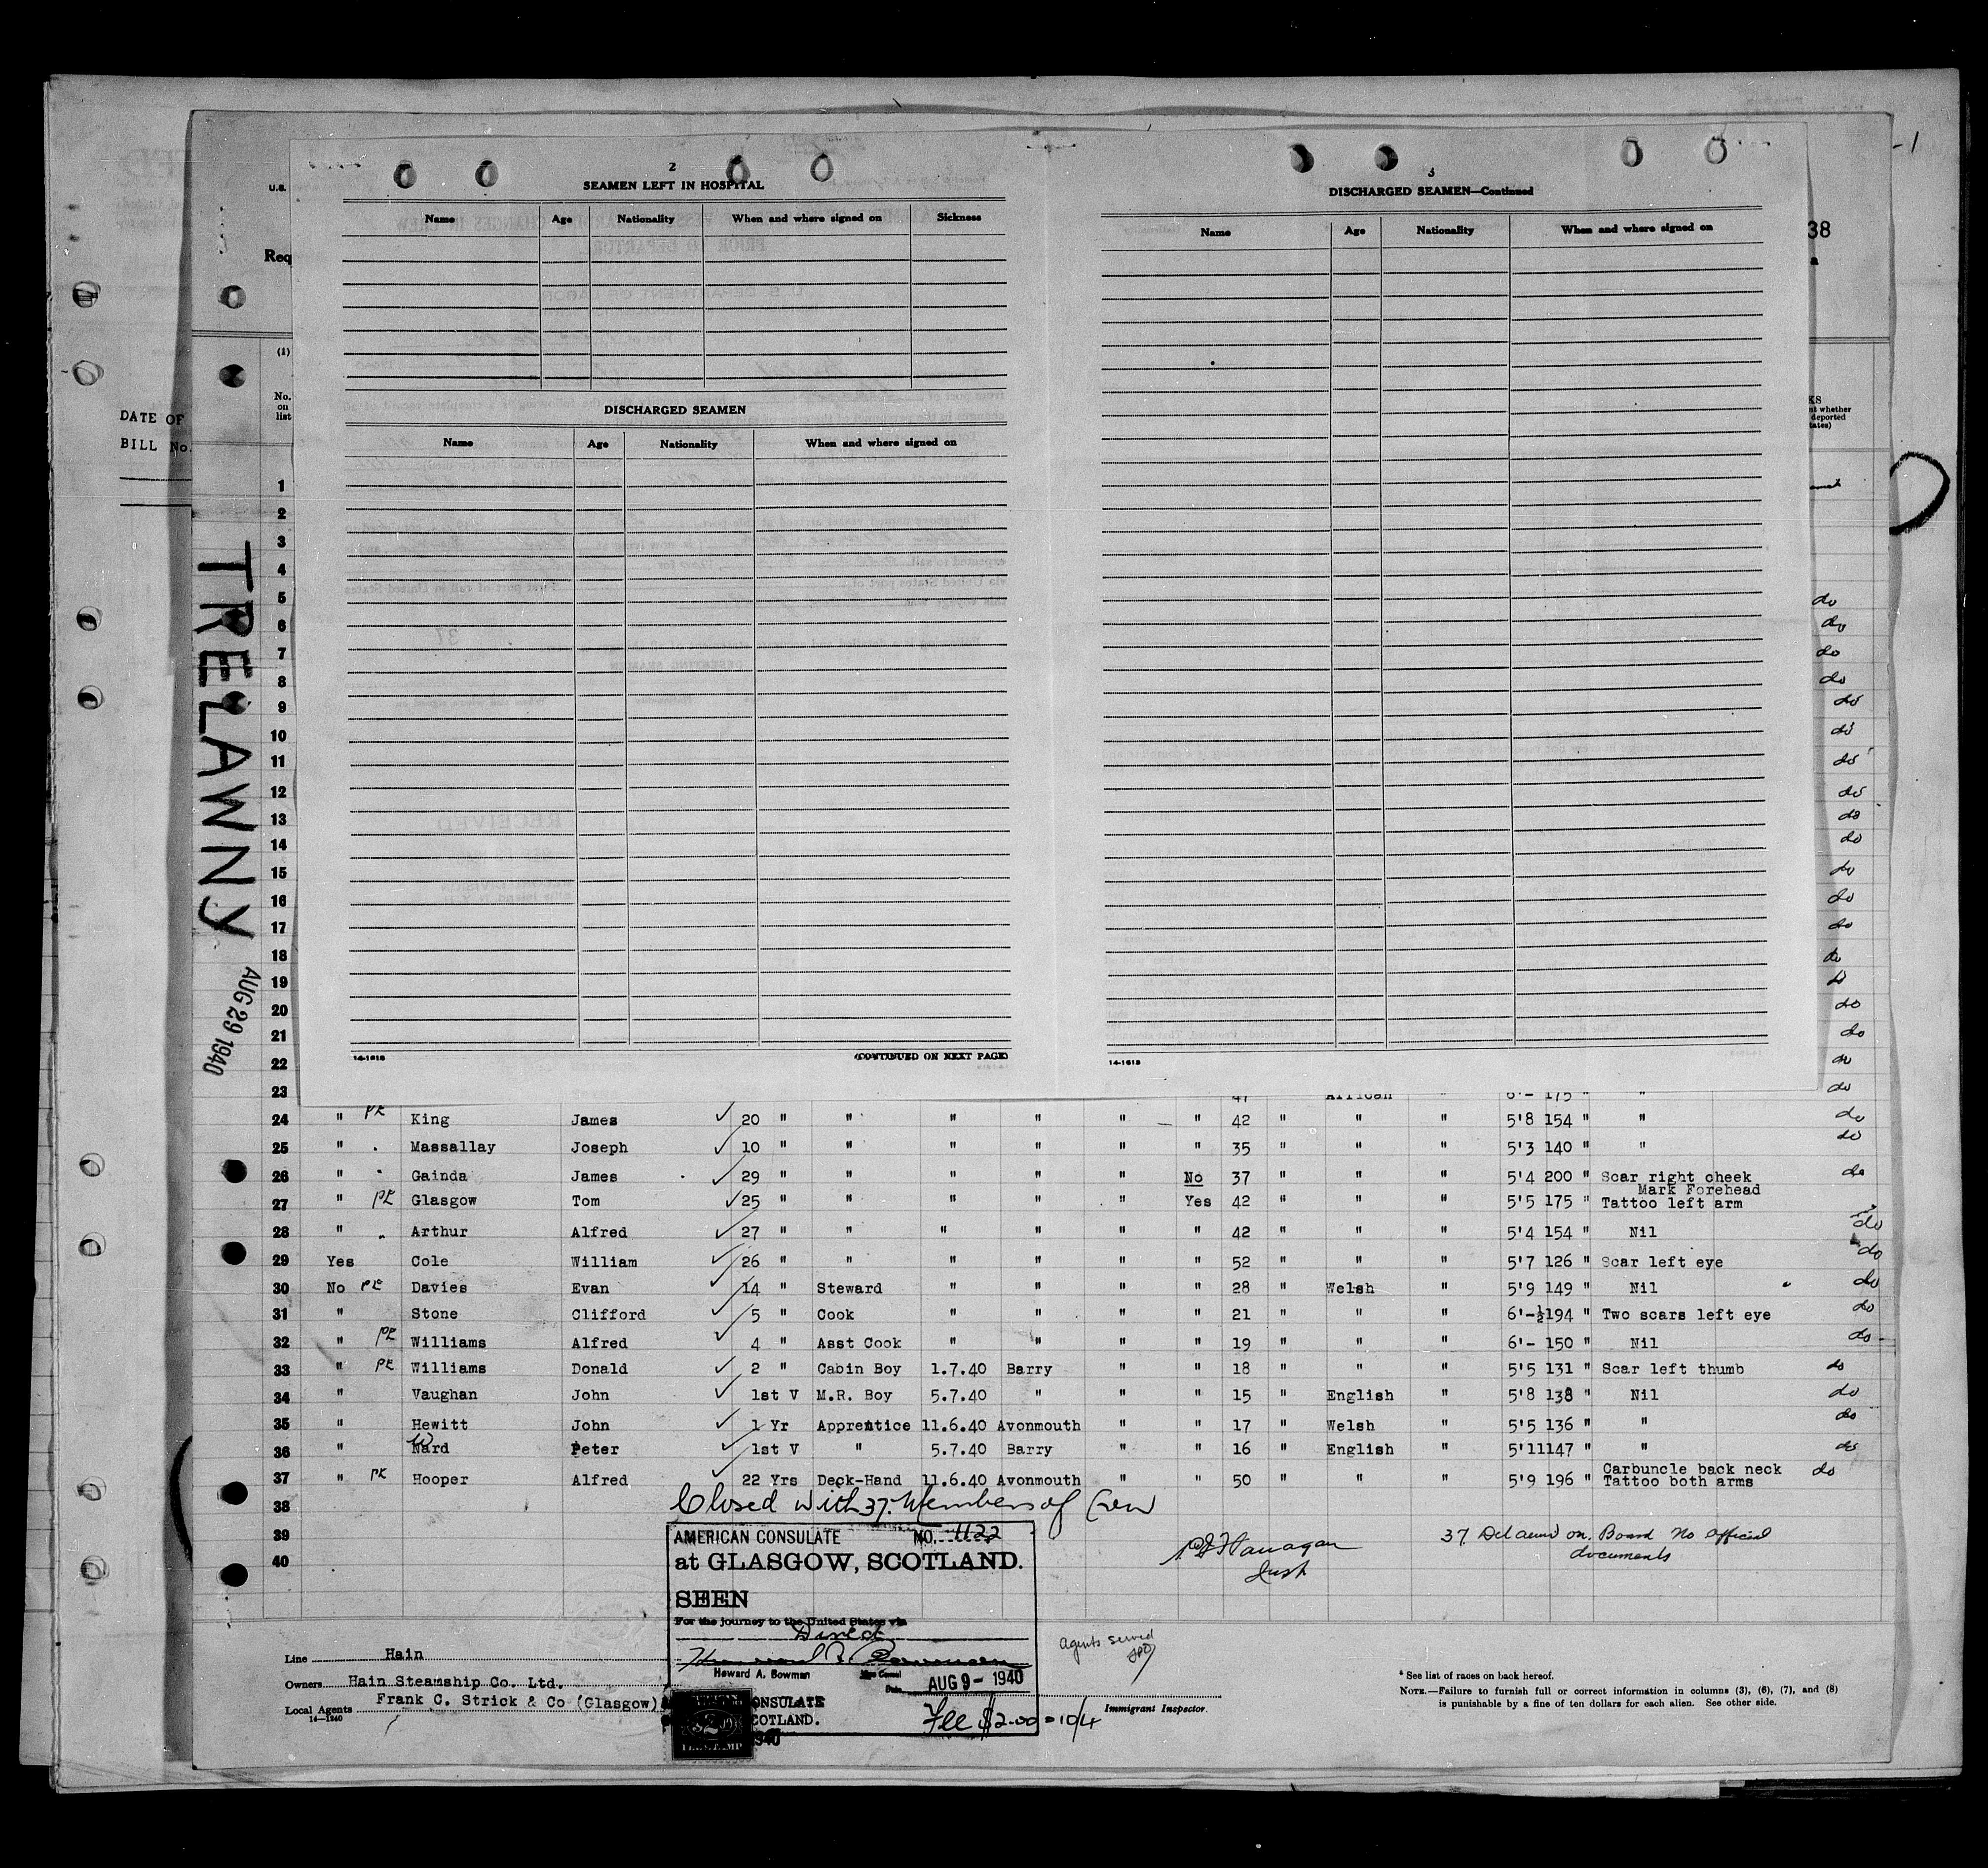 U.S.
Req
DATE OF
BILL No.
TRELAWNY
AUG 29 1940
2
SEAMEN LEFT IN HOSPITAL
Name Age Nationality When and where signed on Sickness
DISCHARGED SEAMEN
Name Age Nationality When and where signed on
14-1618 (CONTINUED ON NEXT PAGE)
3
DISCHARGED SEAMEN—Continued
Name Age Nationality When and where signed on
14-1618
-1
38
KS
nt whether
deported
tates)
(1)
No.
on
list
1
2
3
4
5 do
6 do
7 do
8 do
9 do
10 do
11 do
12 do
13 do
14 do
15 do
16 do
17 do
18 do
19 do
20 do
21 do
22 do
23 47 African " 6'- 175 " do
24 " PE King James ✓ 20 " " " " " " 42 " " " 5'8 154 " " do
25 " " Massallay Joseph ✓ 10 " " " " " " 35 " " " 5'3 140 " " do
26 " " Gainda James ✓ 29 " " " " " No 37 " " " 5'4 200 " Scar right cheek do
Mark Forehead
27 " PE Glasgow Tom ✓ 25 " " " " " Yes 42 " " " 5'5 175 " Tattoo left arm
28 " " Arthur Alfred ✓ 27 " " " " " " 42 " " " 5'4 154 " Nil do
29 Yes Cole William ✓ 26 " " " " " " 52 " " " 5'7 126 " Scar left eye do
30 No PE Davies Evan ✓ 14 " Steward " " " " 28 " Welsh " 5'9 149 " Nil do
31 " Stone Clifford ✓ 5 " Cook " " " " 21 " " " 6'-½ 194 " Two scars left eye do
32 " PE Williams Alfred ✓ 4 " Asst Cook " " " " 19 " " " 6'- 150 " Nil do
33 " PE Williams Donald ✓ 2 " Cabin Boy 1.7.40 Barry " " 18 " " " 5'5 131 " Scar left thumb do
34 " Vaughan John ✓ 1st V M.R. Boy 5.7.40 " " " 15 " English " 5'8 138 " Nil do
35 " Hewitt John ✓ 1 Yr Apprentice 11.6.40 Avonmouth " " 17 " Welsh " 5'5 136 " " do
36 " Ward Peter ✓ 1st V " 5.7.40 Barry " " 16 " English " 5'11 147 " " do
37 " PE Hooper Alfred ✓ 22 Yrs Deck-Hand 11.6.40 Avonmouth " " 50 " " " 5'9 196 " Carbuncle back neck do
Tattoo both arms
38 Closed with 37. Members of Crew
39
40
AMERICAN CONSULATE NO. 1122
at GLASGOW, SCOTLAND.
SEEN
For the journey to the United States via
Direct
Howard A. Bowman
Howard A. Bowman Vice Consul
Date AUG 9 - 1940
CONSULATE
SCOTLAND.
1940
Fee $2.00 = 10/4
Flanagan
Insp
37 on Board No official
documents
Agents served
Line Hain
Owners Hain Steamship Co. Ltd.
Local Agents Frank C. Strick & Co (Glasgow)
14-1240
Immigrant Inspector.
* See list of races on back hereof.
NOTE.—Failure to furnish full or correct information in columns (3), (6), (7), and (8)
is punishable by a fine of ten dollars for each alien. See other side.